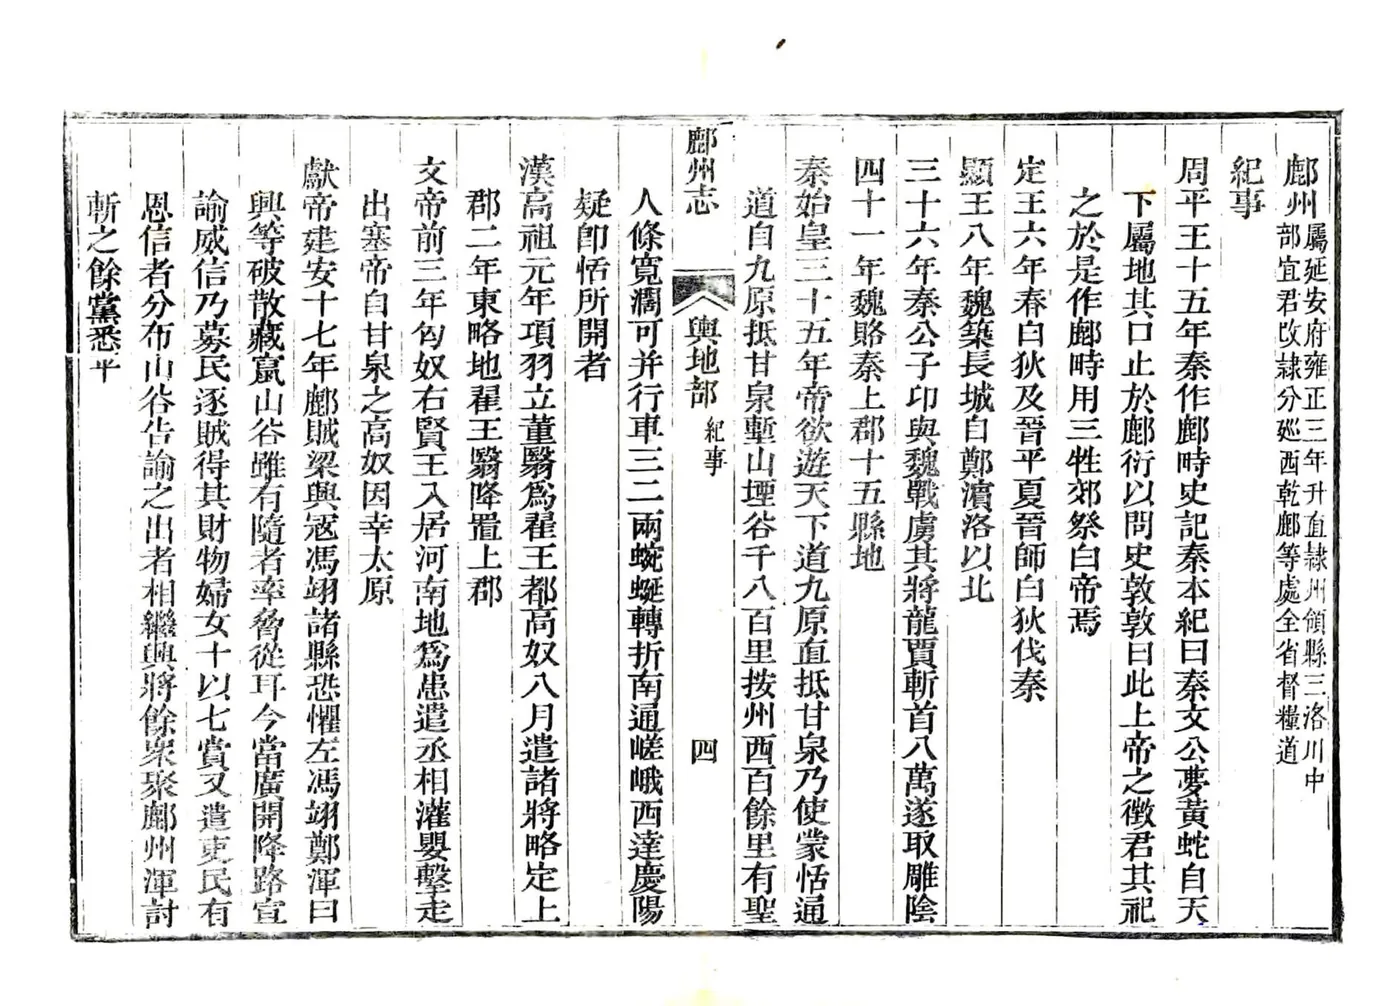 鄜州屬延安府雍正三年升直隷州領縣三洛川中
部宜君改隷分廵西乾鄜等處全省督糧道
紀事
周平王十五年秦作鄜畤史記秦本紀曰秦文公夢黃蛇自天
下屬地其口止於鄜衍以問史敦敦曰此上帝之徵君其祀
之於是作鄜畤用三牲郊祭白帝焉
定王六年春白狄及晉平夏晉師白狄伐秦
顯王八年魏築長城自鄭濱洛以北
三十六年秦公子卬與魏戰虜其將龍賈斬首八萬遂取雕陰
四十一年魏賂秦上郡十五縣地
秦始皇三十五年帝欲遊天下道九原直抵甘泉乃使蒙恬通
道自九原抵甘泉塹山堙谷千八百里按州西百餘里有聖
人條寬濶可并行車三二兩蜿蜒轉折南通嵯峨西達慶陽
疑卽恬所開者
鄜州志
輿地部
紀事
四
漢高祖元年項羽立董翳爲翟王都高奴八月遣諸將略定上
郡二年東略地翟王翳降置上郡
文帝前三年匈奴右賢王入居河南地爲患遣丞相灌嬰擊走
出塞帝自甘泉之高奴因幸太原
獻帝建安十七年鄜賊梁興寇馮翊諸縣恐懼左馮翊鄭渾曰
興等破散藏竄山谷雖有隨者率脅從耳今當廣開降路宣
諭威信乃募民逐賊得其財物婦女十以七賞又遣吏民有
恩信者分布山谷告諭之出者相繼興將餘衆聚鄜州渾討
斬之餘黨悉平